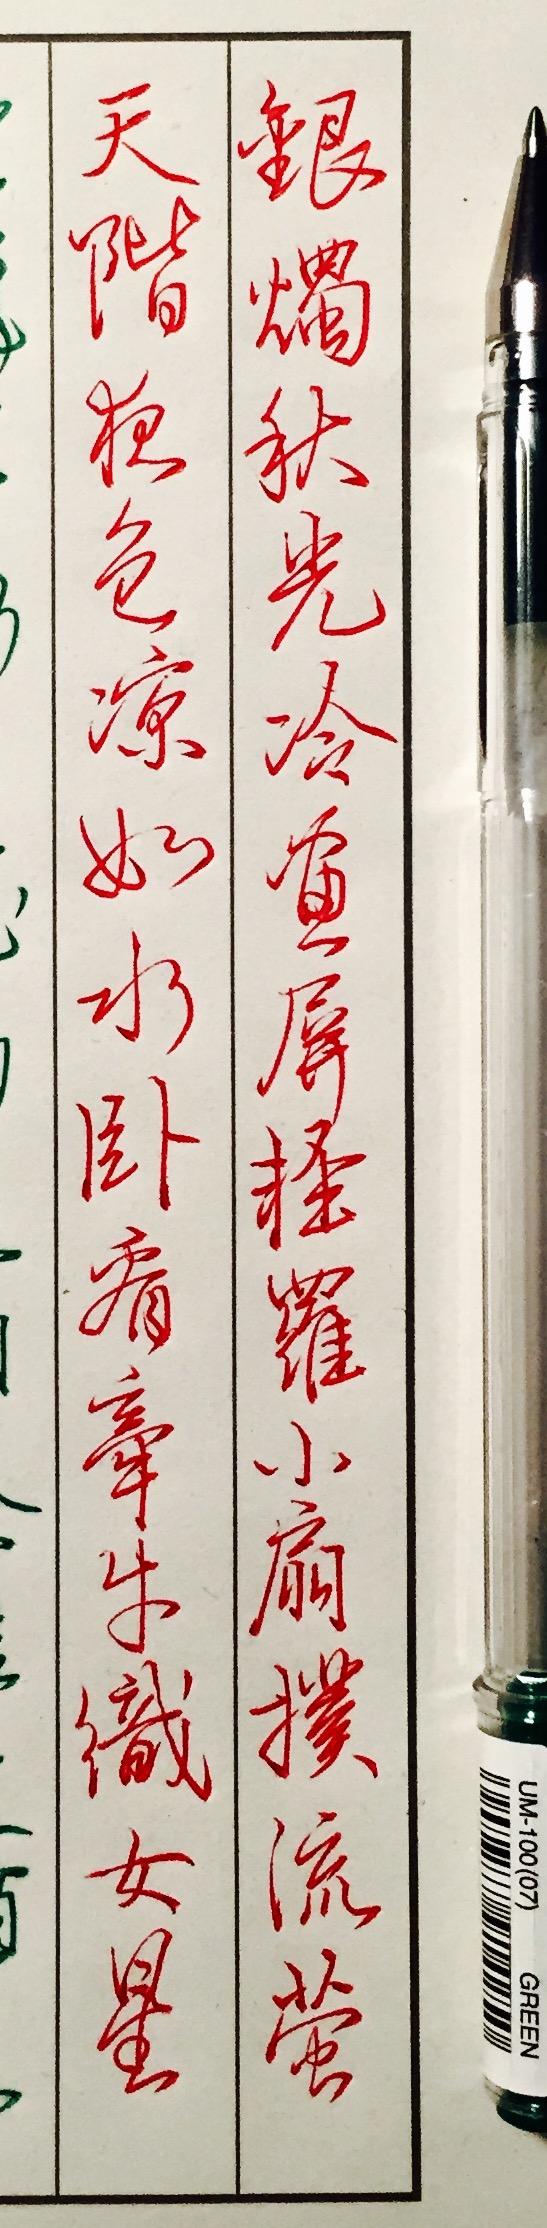 銀燭秋光冷畫屏輕羅小扇撲流螢
天階夜色涼如水臥看牽牛織女星
UM-100(07) GREEN